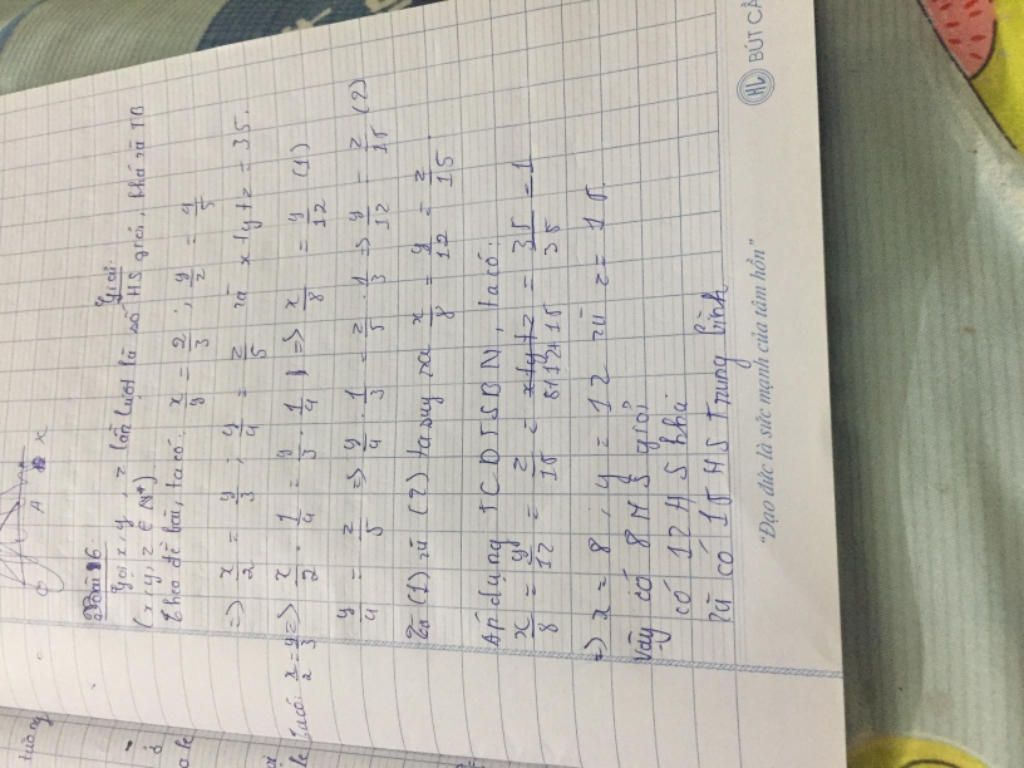 tường
O A x
Bài 16:
Giải:
Gọi x, y, z lần lượt là số HS giỏi, khá và TB
(x, y, z ∈ N*)
Theo đề bài, ta có: x/y = 2/3 ; y/2 = 4/5
=> x/2 = y/3 ; y/4 = z/5 và x+y+z = 35.
Ta có: x/2 = y/3 => x/2 . 1/4 = y/3 . 1/4 => x/8 = y/12 (1)
y/4 = z/5 => y/4 . 1/3 = z/5 . 1/3 => y/12 = z/15 (2)
Từ (1) và (2) ta suy ra x/8 = y/12 = z/15.
Áp dụng TCDTSBN, ta có:
x/8 = y/12 = z/15 = x+y+z/8+12+15 = 35/35 = 1
=> x = 8 ; y = 12 và z = 15
Vậy có 8 HS giỏi
có 12 HS khá
và có 15 HS Trung bình
"Đạo đức là sức mạnh của tâm hồn"
HL BÚT